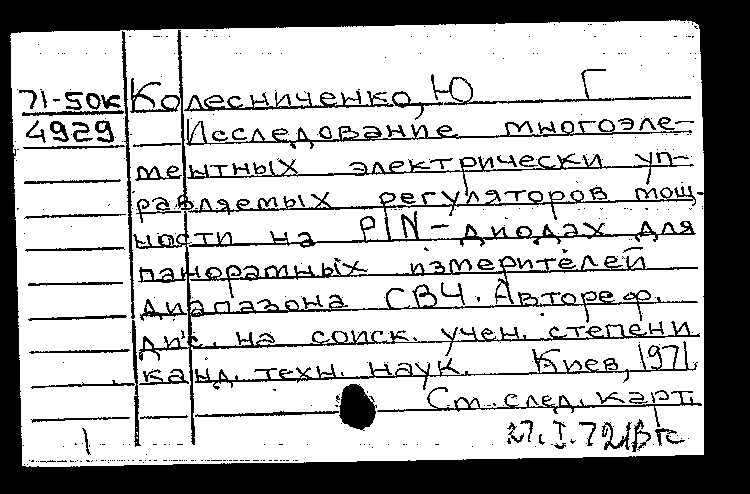 71-50к Колесниченко, Ю Г
4929 Исследование многоэле-
ментных электрически уп-
равляемых регуляторов мощ-
ности на PIN-диодах для
панорамных измерителей
диапазона СВЧ. Автореф.
дис. на соиск. учен. степени
канд. техн. наук. Киев, 1971.
См. след. карт.
27.I.72